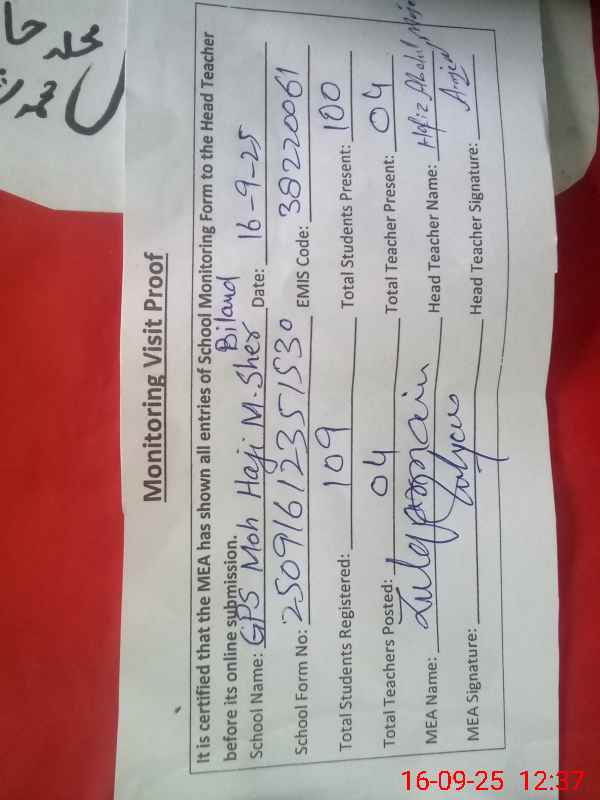 محلہ حا
Monitoring Visit Proof
It is certified that the MEA has shown all entries of School Monitoring Form to the Head Teacher
before its online submission.
School Name: GPS Moh Haji M. Sher Biland Date: 16-9-25
School Form No: 25091612351530 EMIS Code: 38220061
Total Students Registered: 109 Total Students Present: 100
Total Teachers Posted: 04 Total Teacher Present: 04
MEA Name: Head Teacher Name: Hafiz Abdul
MEA Signature: Head Teacher Signature:
16-09-25 12:37